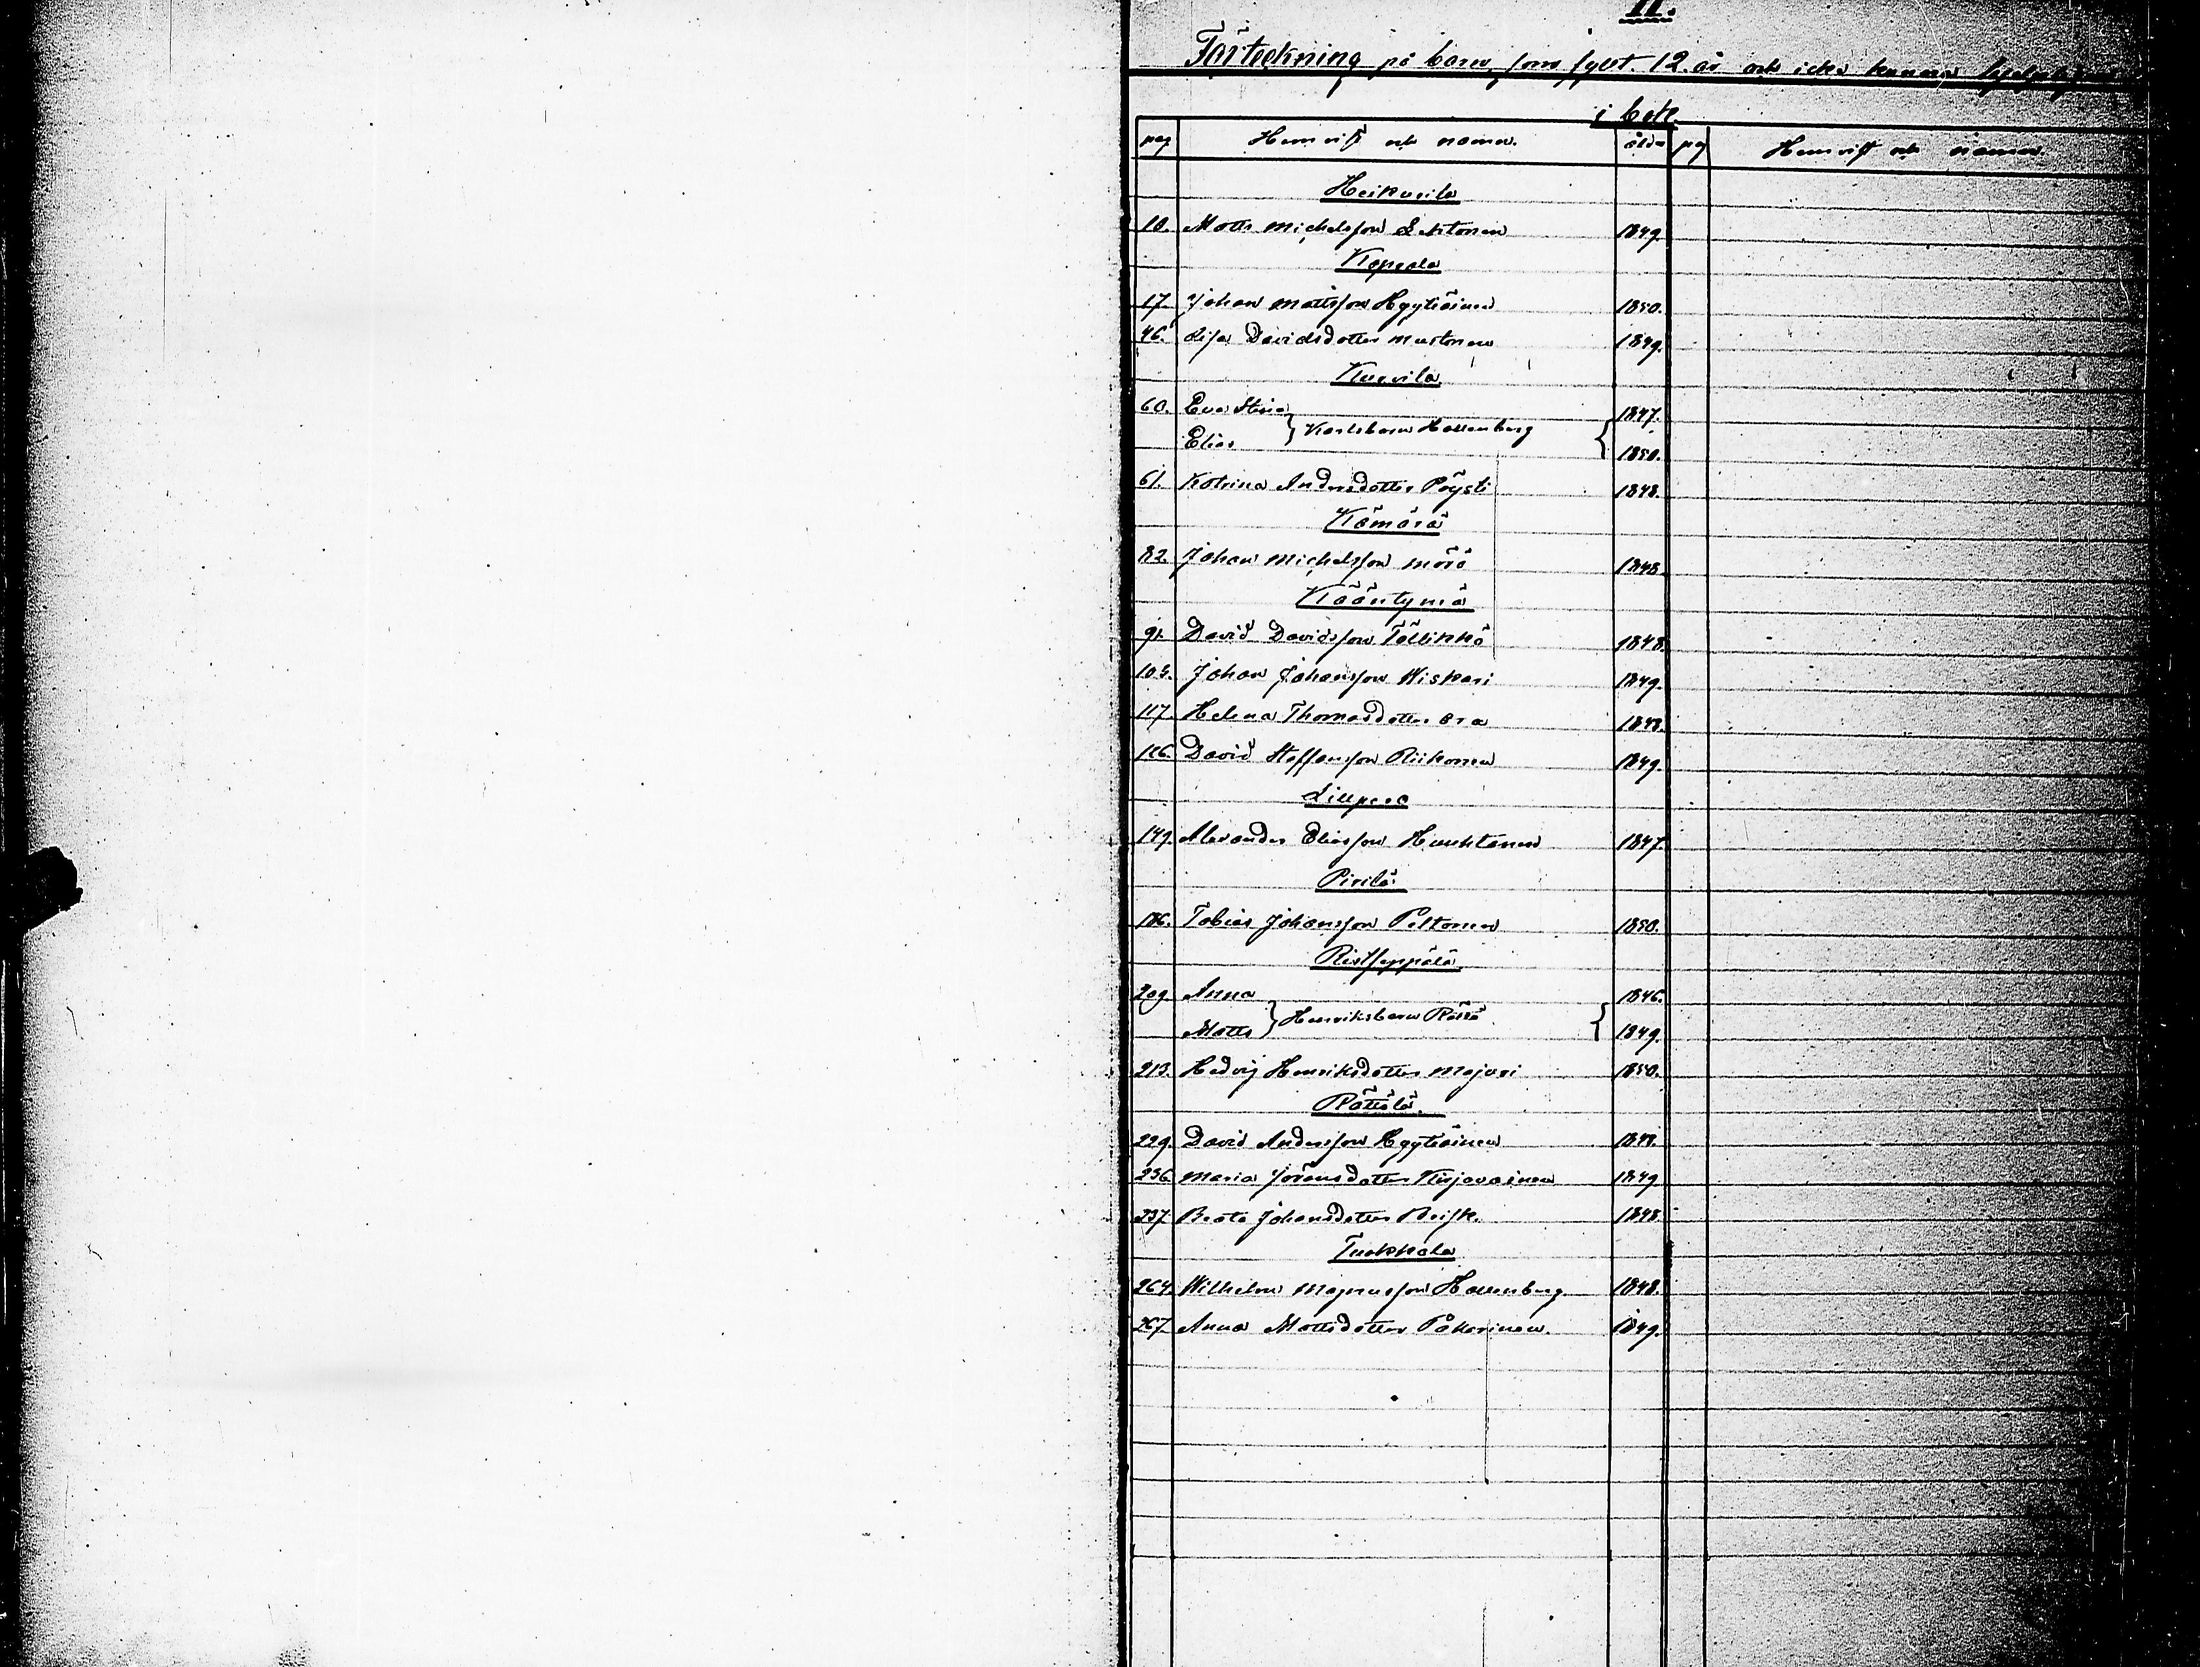 II.
Förteckning på barn, som fyllt. 12. år och icke kunna
i bok.
pag Hemvist och namn. ålder pag Hemvist och namn.
Heikurila
10. Matts Michelsson Lehtonen 1849.
Kopsala
17. Johan Mattsson Hyytiäinen 1850.
46. Lisa Davidsdotter Mustonen 1849.
Kuurila
60. Eva Stina 1847.
} Karlsbarn Hallenberg {
Elias 1850.
61. Katrina Andersdotter Pöysti 1848.
Kämärä
82. Johan Michelsson Mörö 1848.
Kääntymä
91. David Davidsson Töllikkö 1848.
105. Johan Johansson Wiskari 1849.
117. Helena Thomasdotter Ora 1848.
126. David Staffansson Riikonen 1849.
Lillpero
149. Alexander Eliasson Huuhtanen 1847.
Pirilä
186. Tobias Johansson Peltonen 1850.
Ristseppälä
209. Anna 1846.
} Henriksbarn Rässä {
Matts 1849.
213. Hedvig Henriksdotter Majuri 1850.
Rättälä.
229. David Andersson Hyytiäinen 1848.
236. Maria Göransdotter Kirjavainen 1849.
237. Beata Johansdotter Brisk. 1848.
Tuokkola
264. Wilhelm Magnusson Hallenberg. 1848.
267. Anna Mattsdotter Pakarinen. 1849.